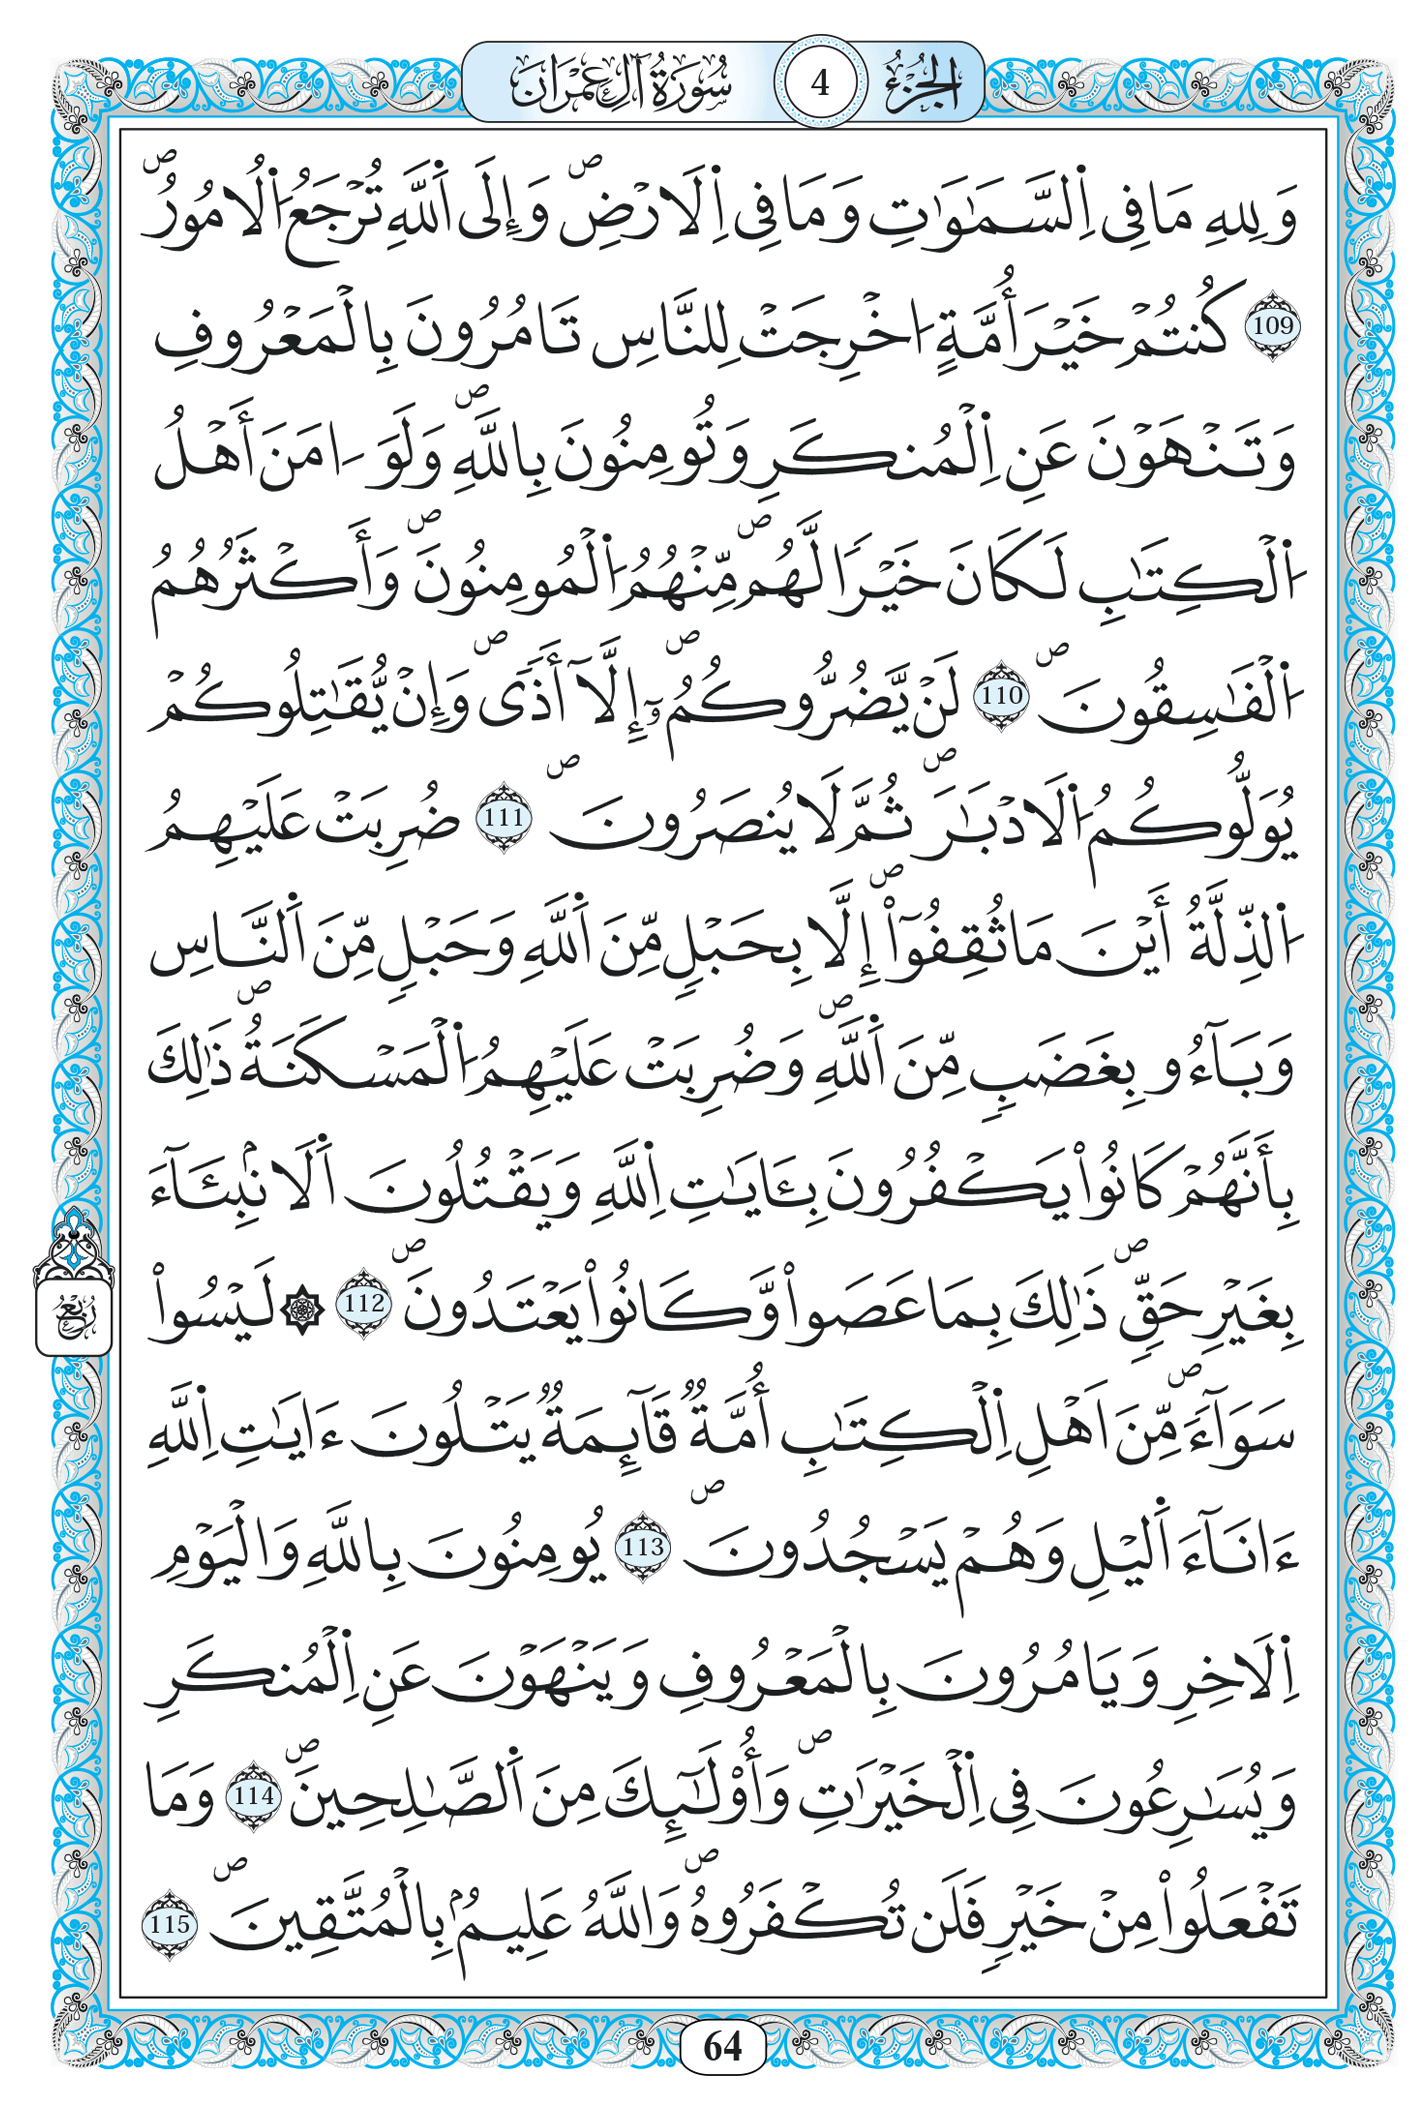 الجزء 4 سورة آل عمران
وَلِلهِ مَا فِى اِ۬لسَّمَٰوَٰتِ وَمَا فِى اِ۬لَارْضِۖ وَإِلَى اَ۬للَّهِ تُرْجَعُ اُ۬لُامُورُۖ
109 كُنتُمْ خَيْرَ أُمَّةٍ اخْرِجَتْ لِلنَّاسِ تَامُرُونَ بِالْمَعْرُوفِ
وَتَنْهَوْنَ عَنِ اِ۬لْمُنكَرِ وَتُومِنُونَ بِاللَّهِۖ وَلَوَ اٰمَنَ أَهْلُ
اُ۬لْكِتَٰبِ لَكَانَ خَيْراٗ لَّهُمۖ مِّنْهُمُ اُ۬لْمُومِنُونَۖ وَأَكْثَرُهُمُ
اُ۬لْفَٰسِقُونَۖ 110 لَنْ يَّضُرُّوكُمُۥٓ إِلَّآ أَذىٗۖ وَإِنْ يُّقَٰتِلُوكُمْ
يُوَلُّوكُمُ اُ۬لَادْبَٰرَۖ ثُمَّ لَا يُنصَرُونَۖ 111 ضُرِبَتْ عَلَيْهِمُ
اُ۬لذِّلَّةُ أَيْنَ مَا ثُقِفُوٓاْۖ إِلَّا بِحَبْلٖ مِّنَ اَ۬للَّهِ وَحَبْلٖ مِّنَ اَ۬لنَّاسِ
وَبَآءُو بِغَضَبٖ مِّنَ اَ۬للَّهِۖ وَضُرِبَتْ عَلَيْهِمُ اُ۬لْمَسْكَنَةُۖ ذَٰلِكَ
بِأَنَّهُمْ كَانُواْ يَكْفُرُونَ بِـَٔايَٰتِ اِ۬للَّهِ وَيَقْتُلُونَ اَ۬لَانۢبِئَآءَ
بِغَيْرِ حَقّٖۖ ذَٰلِكَ بِمَا عَصَواْ وَّكَانُواْ يَعْتَدُونَۖ 112 ۞ لَيْسُواْ
سَوَآءٗۖ مِّنَ اَهْلِ اِ۬لْكِتَٰبِ أُمَّةٞ قَآئِمَةٞ يَتْلُونَ ءَايَٰتِ اِ۬للَّهِ
ءَانَآءَ اَ۬ليْلِ وَهُمْ يَسْجُدُونَۖ 113 يُومِنُونَ بِاللَّهِ وَالْيَوْمِ
اِ۬لَاخِرِ وَيَامُرُونَ بِالْمَعْرُوفِ وَيَنْهَوْنَ عَنِ اِ۬لْمُنكَرِ
وَيُسَٰرِعُونَ فِى اِ۬لْخَيْرَٰتِۖ وَأُوْلَٰٓئِكَ مِنَ اَ۬لصَّٰلِحِينَۖ 114 وَمَا
تَفْعَلُواْ مِنْ خَيْرٖ فَلَن تُكْفَرُوهُۖ وَاللَّهُ عَلِيمُۢ بِالْمُتَّقِينَۖ 115
رُبُعُ
64